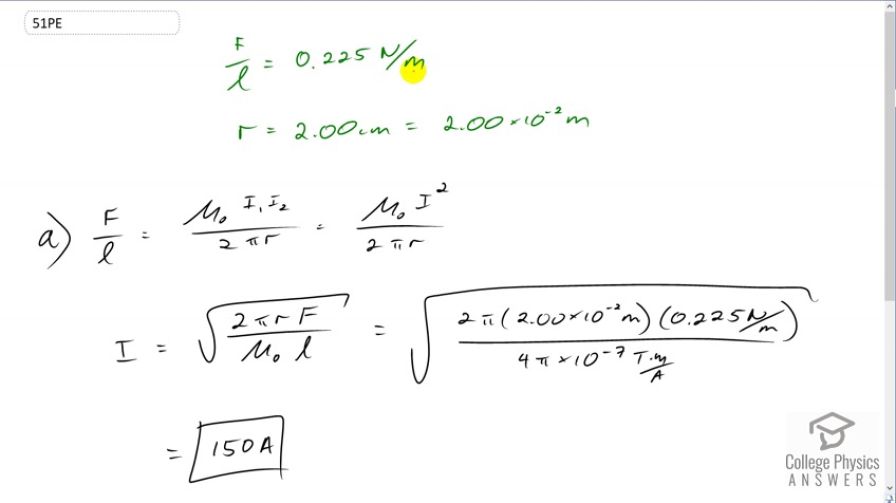 51PE
F/l = 0.225 N/m
r = 2.00cm = 2.00×10⁻² m
a) F/l = μ₀ I₁ I₂ / 2πr = μ₀ I² / 2πr
I = √(2πrF / μ₀ l) = √(2π(2.00×10⁻² m)(0.225 N/m) / 4π×10⁻⁷ T·m/A)
= 150A
College Physics
ANSWERS